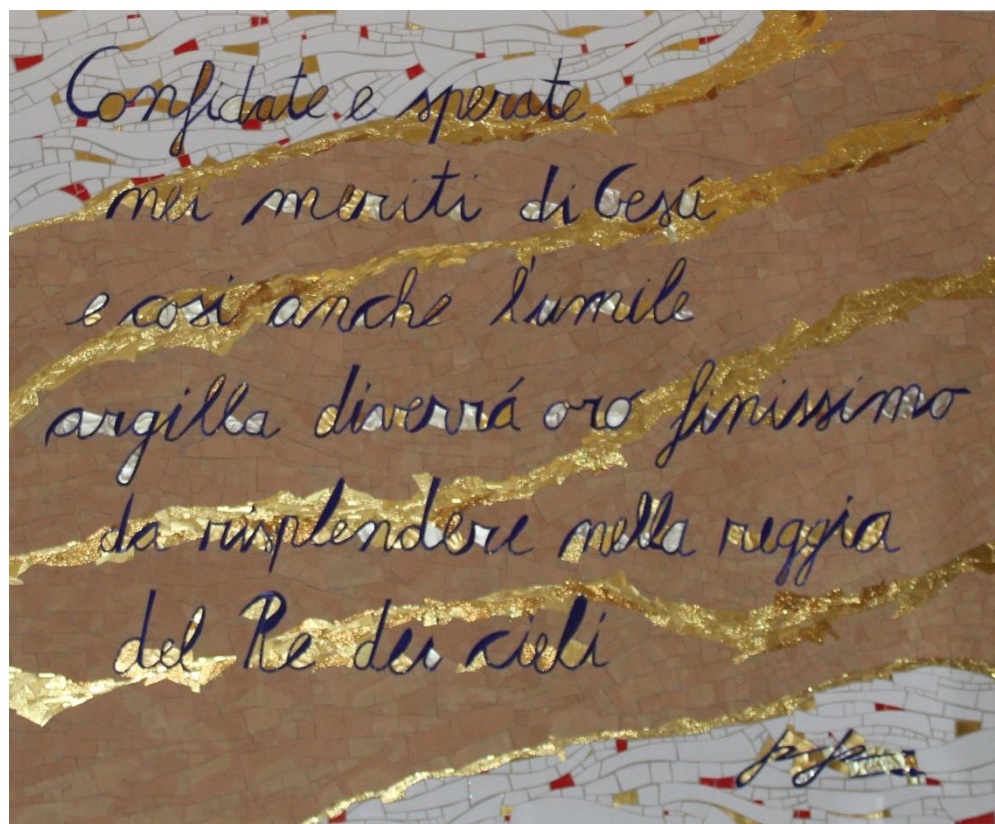 Confidate e sperate
nei meriti di Gesú
e cosi anche l'umile
argilla diverrá oro finissimo
da risplendere nella reggia
del Re dei cieli